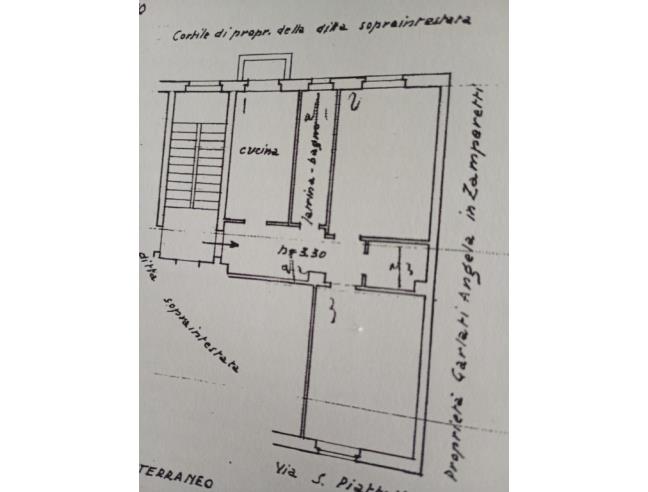 Cortile di propr. della ditta sopraintestata
1
2
a
cucina
latrina-bagno
Proprietà Garlati Angela in Zamparetti
h=3.30
a 2
a 3
3
ditta
sopraintestata
TERRANEO
Via S. Piatt